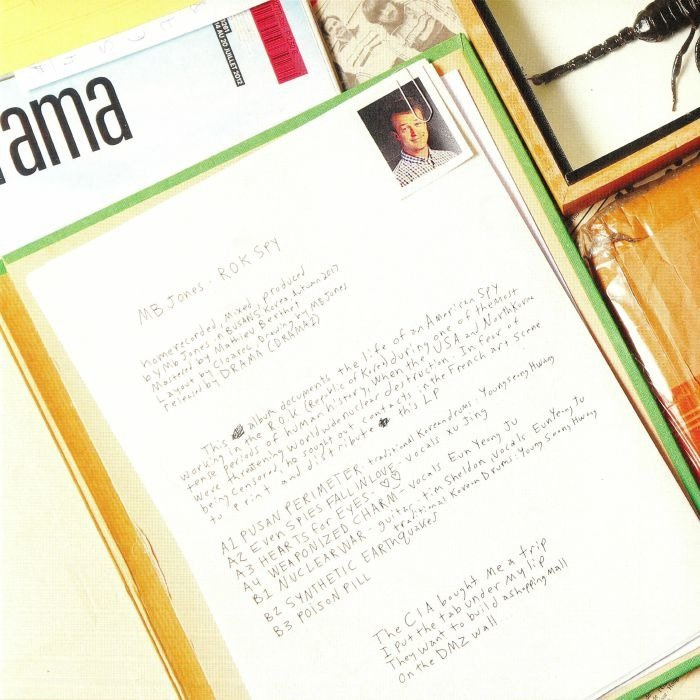 rama
14 AU 20 JUILLET 2012
MB Jones - ROK SPY
homerecorded, mixed, produced
by MB Jones in BUSAN S Korea, Autumn 2017
Mastered by Mathieu Berthet
Layout by Cloarec, Drawing by MB Jones
released by DRAMA (DRAMA2)
This album documents the life of an American SPY
working in the R O K (Republic of Korea) during one of the most
tense periods of human history, when the USA and North Korea
were threatening worldwide nuclear destruction. In fear of
being censored, he sought out contacts in the French art scene
to print and distribute this LP
A1 PUSAN PERIMETER traditional Korean drums: Young seong Hwang
A2 Even SPIES FALL IN LOVE
A3 HEARTS for EYES - ♡♡ vocals Xu Jing
A4 WEAPONIZED CHARM - vocals Eun Yeong Ju
B1 NUCLEAR WAR - guitar: Tim Sheldon, vocals Eun Yeong Ju
traditional Korean Drums: Young Seong Hwang
B2 SYNTHETIC EARTHQUAKES
B3 POISON PILL
The CIA bought me a trip
I put the tab under my lip
They want to build a shopping mall
On the DMZ wall